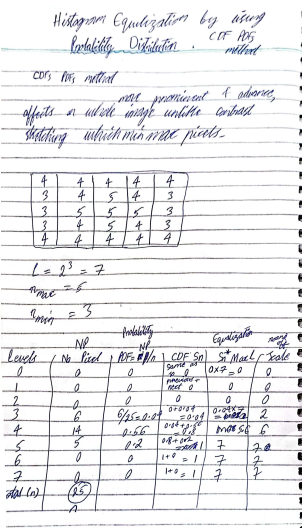 Histogram Equilization by using
Probability Distribution. CDF PDFs
method
CDFs PDFs method
more prominent & advance,
affects on whole image unlike contrast
stretching which min max pixels.
4 4 4 4 4
3 4 5 4 3
3 5 5 5 3
3 4 5 4 3
4 4 4 4 4
L = 2³ = 7
rmax = 5
rmin = 3
Levels NP No Pixel Probability PDF= NP/n CDF Sn Equalization Sn* MaxL Scale
0 0 0 same as 0×7 = 0 0
1 0 0 0 0 0
2 0 0 0 0 0
3 6 6/25=0.04 0+0.04 =0.04 0.04×7 2
4 14 0.56 0.04+0.56 56 6
5 5 0.2 0.8+0.2 7 7
6 0 0 1+0 = 1 7 7
7 0 0 1+0 = 1 7 7
Total (n) 25